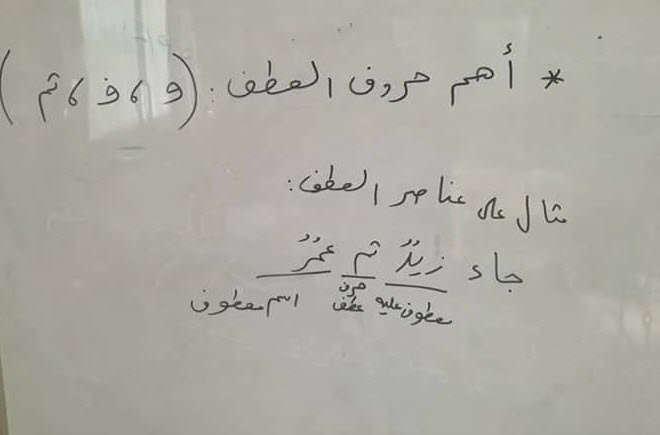 * أهم حروف العطف: (و، ف، ثم)
مثال على عناصر العطف:
جاء زيدٌ ثم عمرٌ
معطوف عليه حرف عطف اسم معطوف